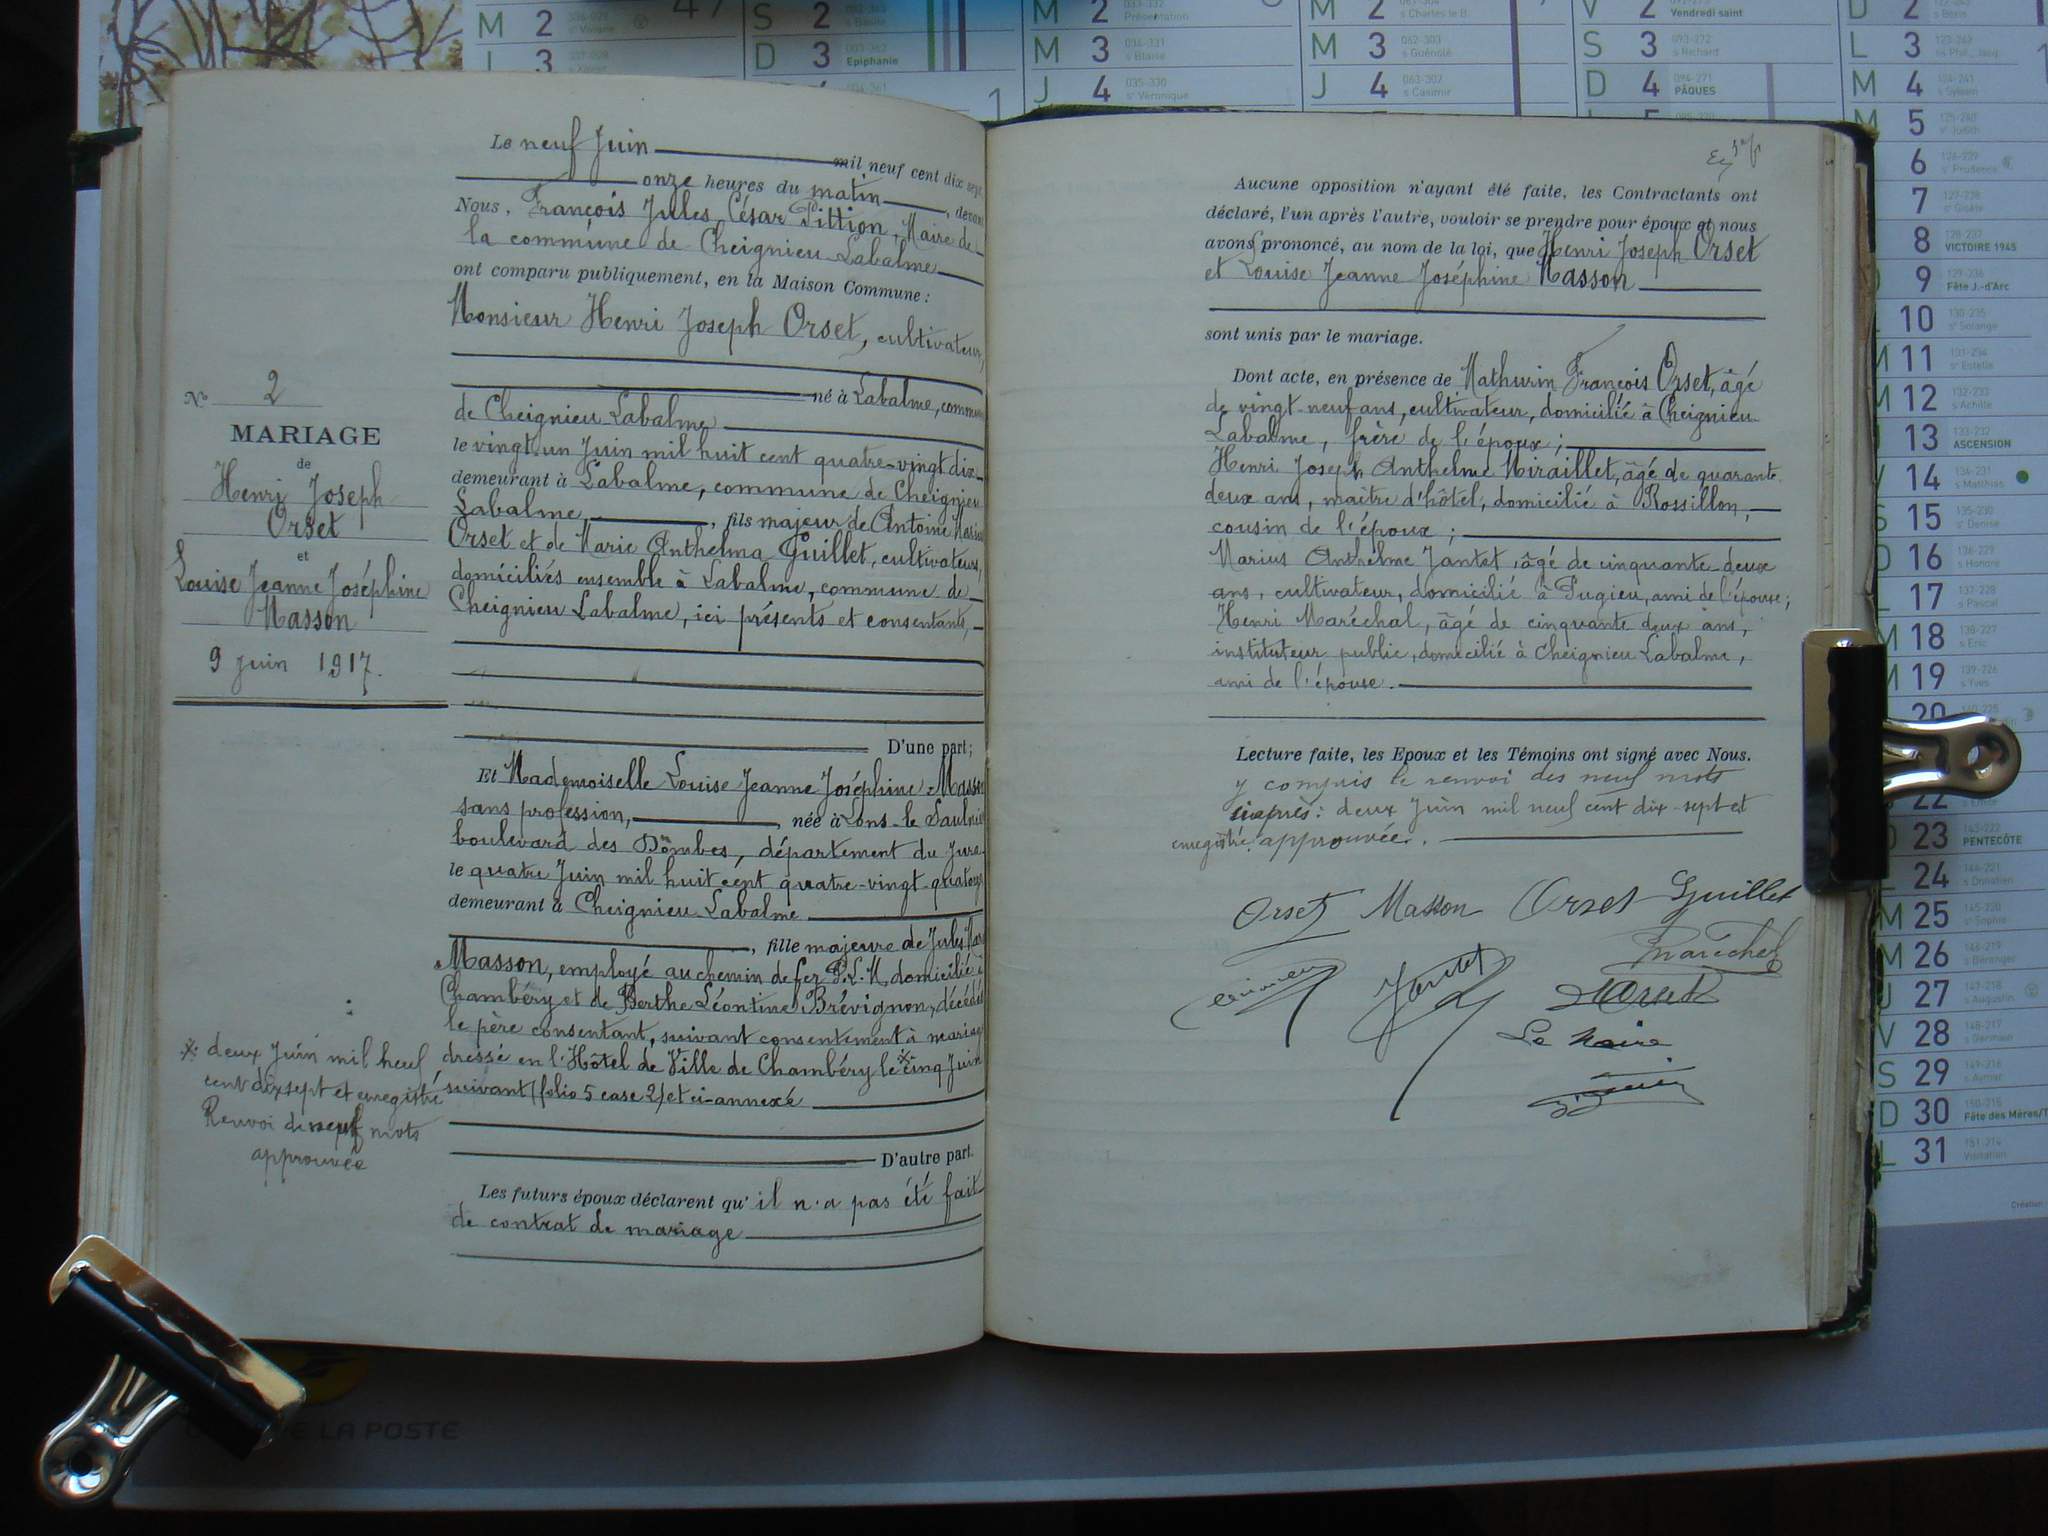 Le neuf Juin mil neuf cent dix sept,
onze heures du matin, devant
Nous, François Jules César Pittion, Maire de
la commune de Cheignieu Labalme
ont comparu publiquement, en la Maison Commune :
Monsieur Henri Joseph Orset, cultivateur,
né à Labalme, commune
de Cheignieu Labalme
le vingt-un Juin mil huit cent quatre-vingt dix
demeurant à Labalme, commune de Cheignieu
Labalme, fils majeur de Antoine
Orset et de Marie Anthelma Guillet, cultivateurs,
domiciliés ensemble à Labalme, commune de
Cheignieu Labalme, ici présents et consentants,
D'une part;
Nº 2
MARIAGE
de
Henri Joseph
Orset
et
Louise Jeanne Joséphine
Masson
9 Juin 1917.
Et Mademoiselle Louise Jeanne Joséphine Masson
sans profession, née à Lons-le Saulnier
boulevard des Dombes, département du Jura
le quatre Juin mil huit cent quatre-vingt-quatorze
demeurant à Cheignieu Labalme
, fille majeure de Jules
Masson, employé au chemin de fer P.L.M, domicilié à
Chambéry et de Berthe Léontine Brévignon, décédée
le père consentant, suivant consentement à mariage
dressé en l'Hôtel de Ville de Chambéry le * cinq Juin
suivant (folio 5 case 2) et ci-annexé
D'autre part.
Les futurs époux déclarent qu'il n'a pas été fait
de contrat de mariage
* deux Juin mil neuf
cent dix sept et enregistré
Renvoi de neuf mots
approuvée
Aucune opposition n'ayant été faite, les Contractants ont
déclaré, l'un après l'autre, vouloir se prendre pour époux et nous
avons prononcé, au nom de la loi, que Henri Joseph Orset
et Louise Jeanne Joséphine Masson
sont unis par le mariage.
Dont acte, en présence de Mathurin François Orset, âgé
de vingt-neuf ans, cultivateur, domicilié à Cheignieu
Labalme, frère de l'époux ;
Henri Joseph Anthelme Miraillet, âgé de quarante
deux ans, maître d'hôtel, domicilié à Rossillon,
cousin de l'époux ;
Marius Anthelme Jantet, âgé de cinquante-deux
ans, cultivateur, domicilié à Pugieu, ami de l'épouse;
Henri Maréchal, âgé de cinquante deux ans,
instituteur public, domicilié à Cheignieu Labalme,
ami de l'épouse.
Lecture faite, les Epoux et les Témoins ont signé avec Nous.
y compris le renvoi des neuf mots
ci après : deux Juin mil neuf cent dix-sept et
enregistré. approuvée.
Orset Masson Orset Guillet
Maréchal
Jantet Orset
Le Maire
M 2
S 2
M 2 Présentation
M 2 s Charles le B.
V 2 Vendredi saint
D 2
L 3
D 3 Epiphanie
M 3 s Blaise
M 3 s Guénolé
S 3 s Richard
L 3
J 4 035-330 sᵉ Véronique
J 4 063-302 s Casimir
D 4 094-271 PÂQUES
M 4 s Sylvain
M 5 sᵉ Judith
6 sᵉ Prudence
7 sᵉ Gisèle
8 VICTOIRE 1945
9 Fête J.-d'Arc
10 sᵉ Solange
11 sᵉ Estelle
12 s Achille
13 ASCENSION
14 s Matthias
15 sᵉ Denise
16 s Honoré
17 s Pascal
18 s Eric
19 s Yves
20
22
23 PENTECÔTE
24 s Donatien
M 25 sᵉ Sophie
M 26 s Bérenger
J 27 s Augustin
V 28 s Germain
S 29 s Aymar
D 30 Fête des Mères/T
L 31 Visitation
Création
LA POSTE